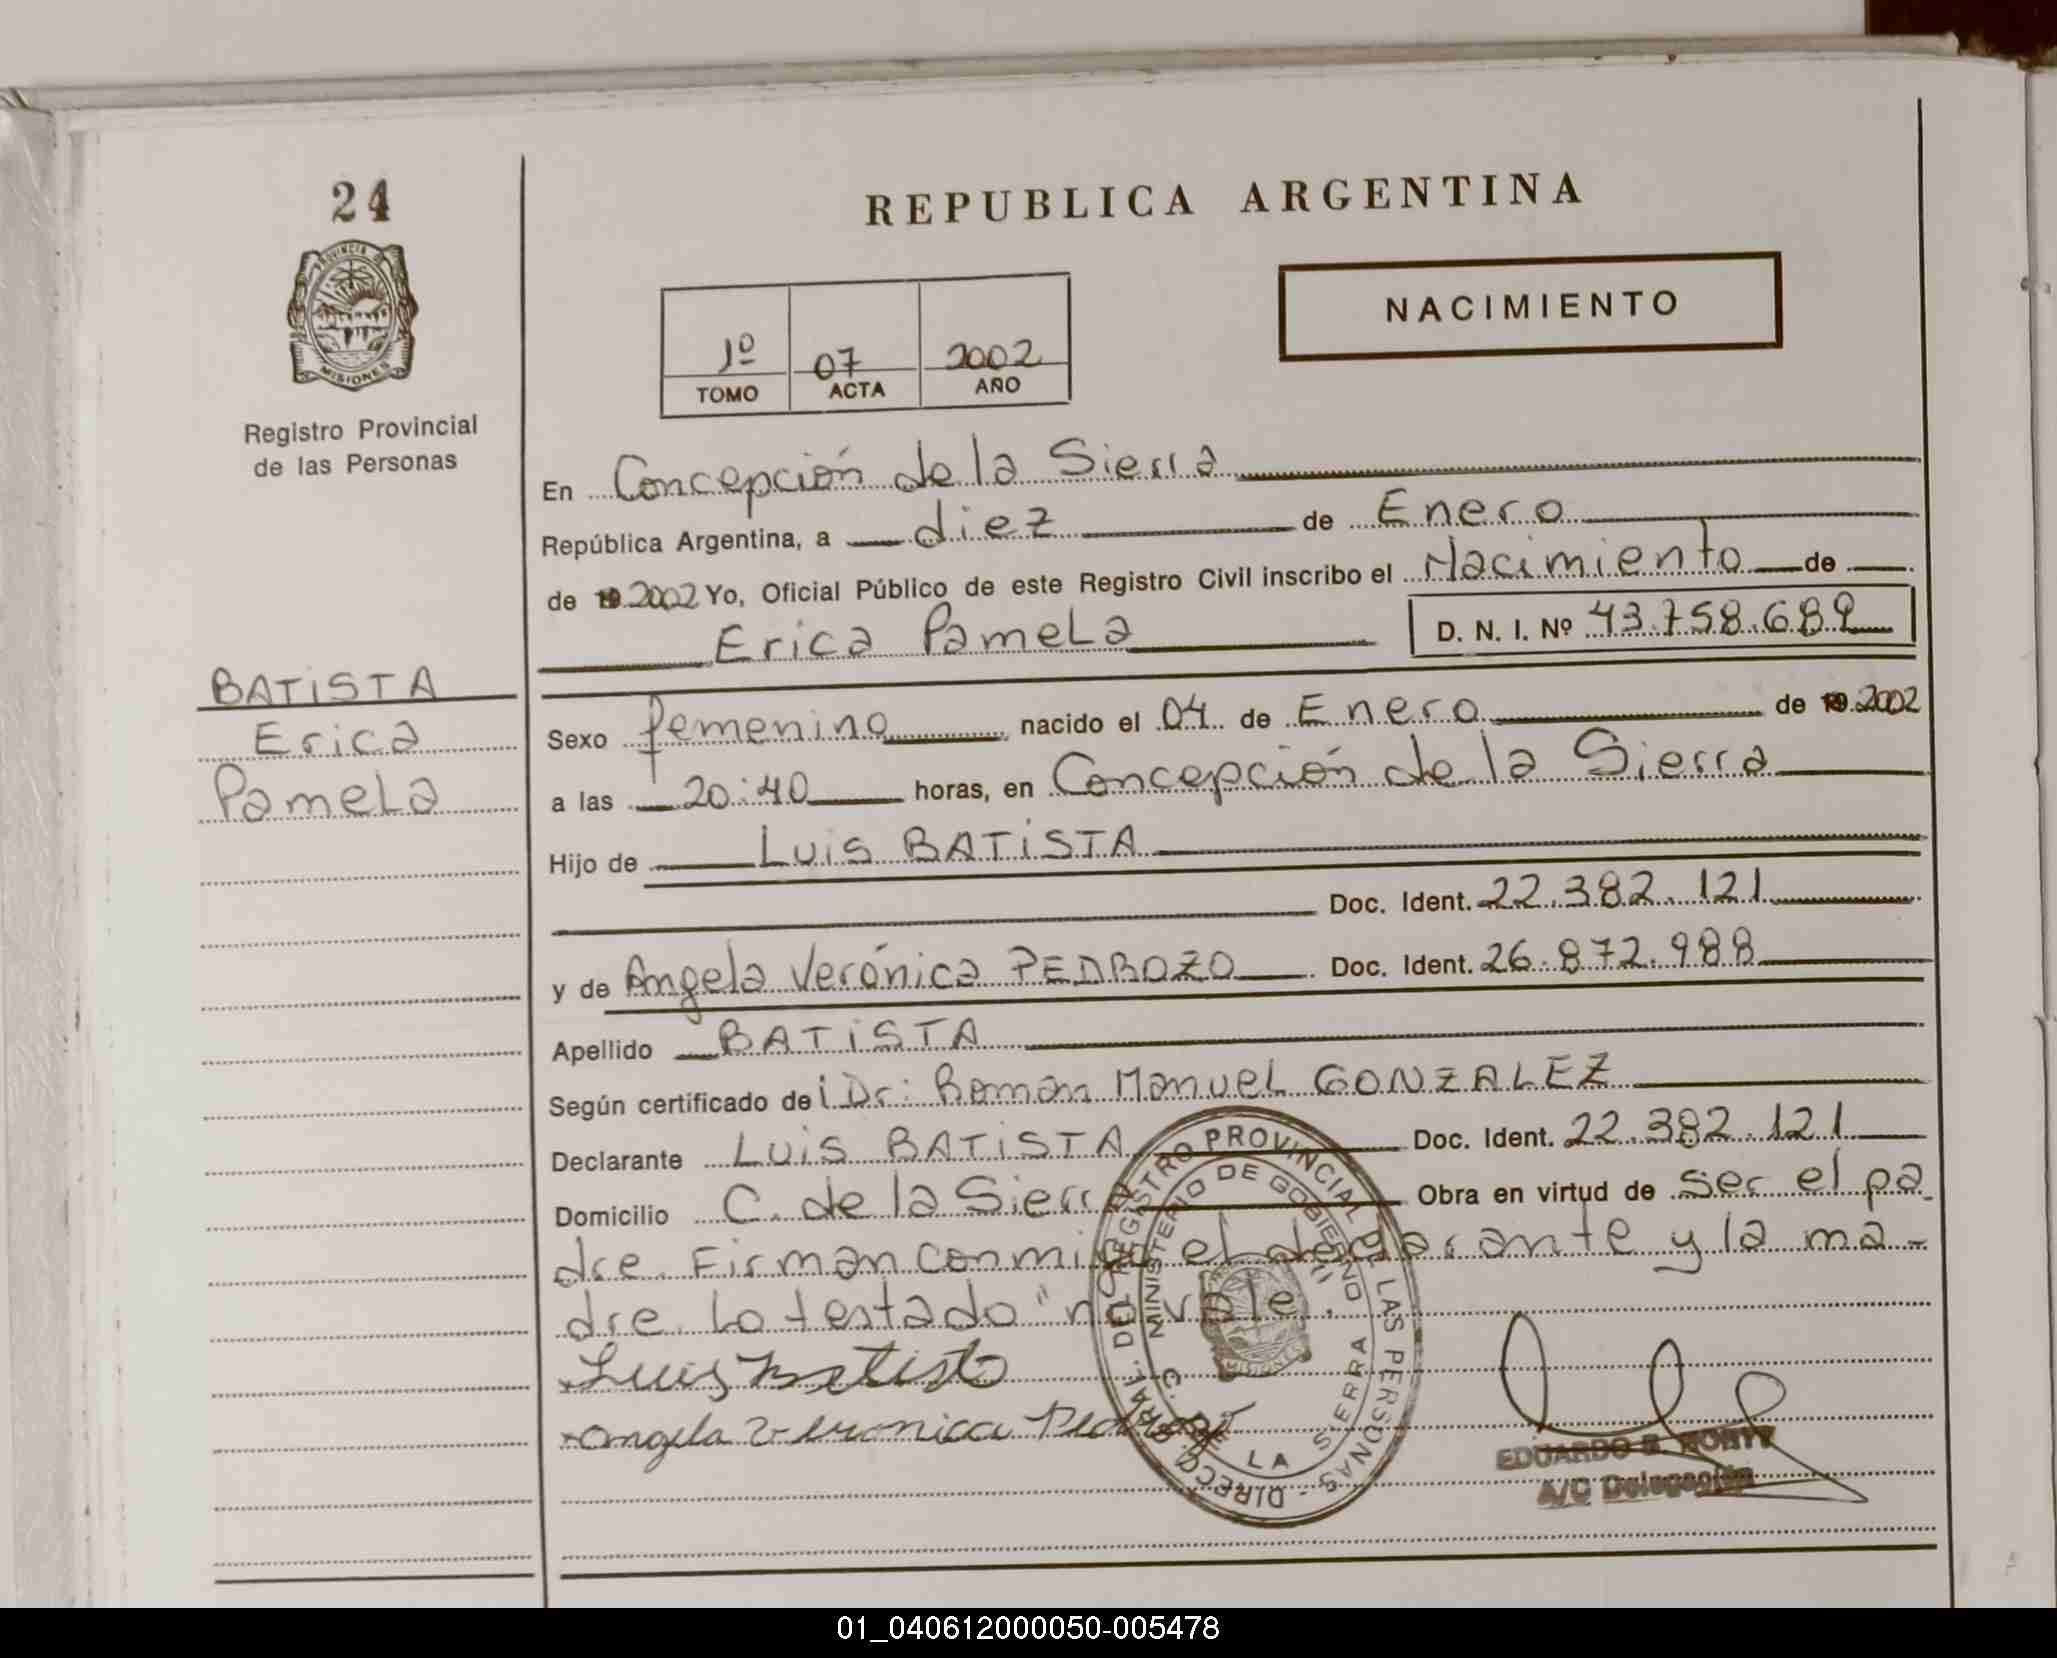 24
PROVINCIA DE
MISIONES
Registro Provincial
de las Personas
BATISTA
Erica
Pamela
REPUBLICA ARGENTINA
NACIMIENTO
1º 07 2002
TOMO ACTA AÑO
En Concepción de la Sierra
República Argentina, a diez de Enero
de 2002 Yo, Oficial Público de este Registro Civil inscribo el Nacimiento de
Erica Pamela D. N. I. Nº 43.758.689
Sexo femenino nacido el 04 de Enero de 2002
a las 20:40 horas, en Concepción de la Sierra
Hijo de Luis BATISTA
Doc. Ident. 22.382.121
y de Angela Verónica PEDROZO Doc. Ident. 26.872.988
Apellido BATISTA
Según certificado del Dr: Román Manuel GONZALEZ
Declarante Luis BATISTA Doc. Ident. 22.382.121
Domicilio C. de la Sierra Obra en virtud de ser el pa
dre. Firman conmigo el declarante y la ma-
dre. Lo testado "no vale".
Luis Batista
Angela Veronica Pedrozo
DIRECC. GRAL. DEL REGISTRO PROVINCIAL DE LAS PERSONAS -
MINISTERIO DE GOBIERNO
C. DE LA SIERRA
MISIONES
EDUARDO R.
A/C Delegación
01_040612000050-005478